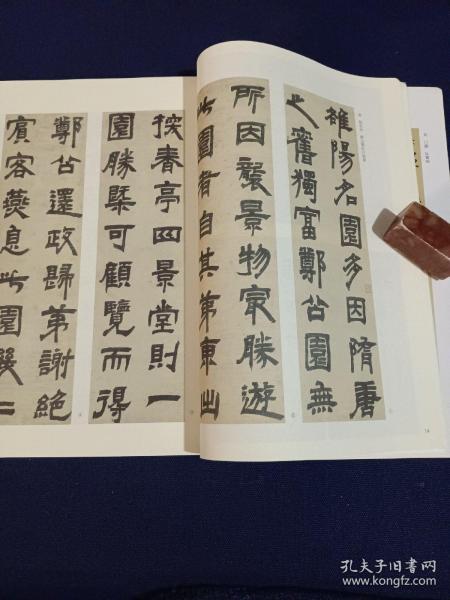 雒陽名園多因隋唐
之舊獨富鄭公園無
所因襲景物冣勝遊
此園者自其第東出
探春亭四景堂則一
園勝槩可顧覽而得
鄭公還政歸第謝絕
賓客燕息此園幾二
14
孔夫子旧书网
www.kongfz.com